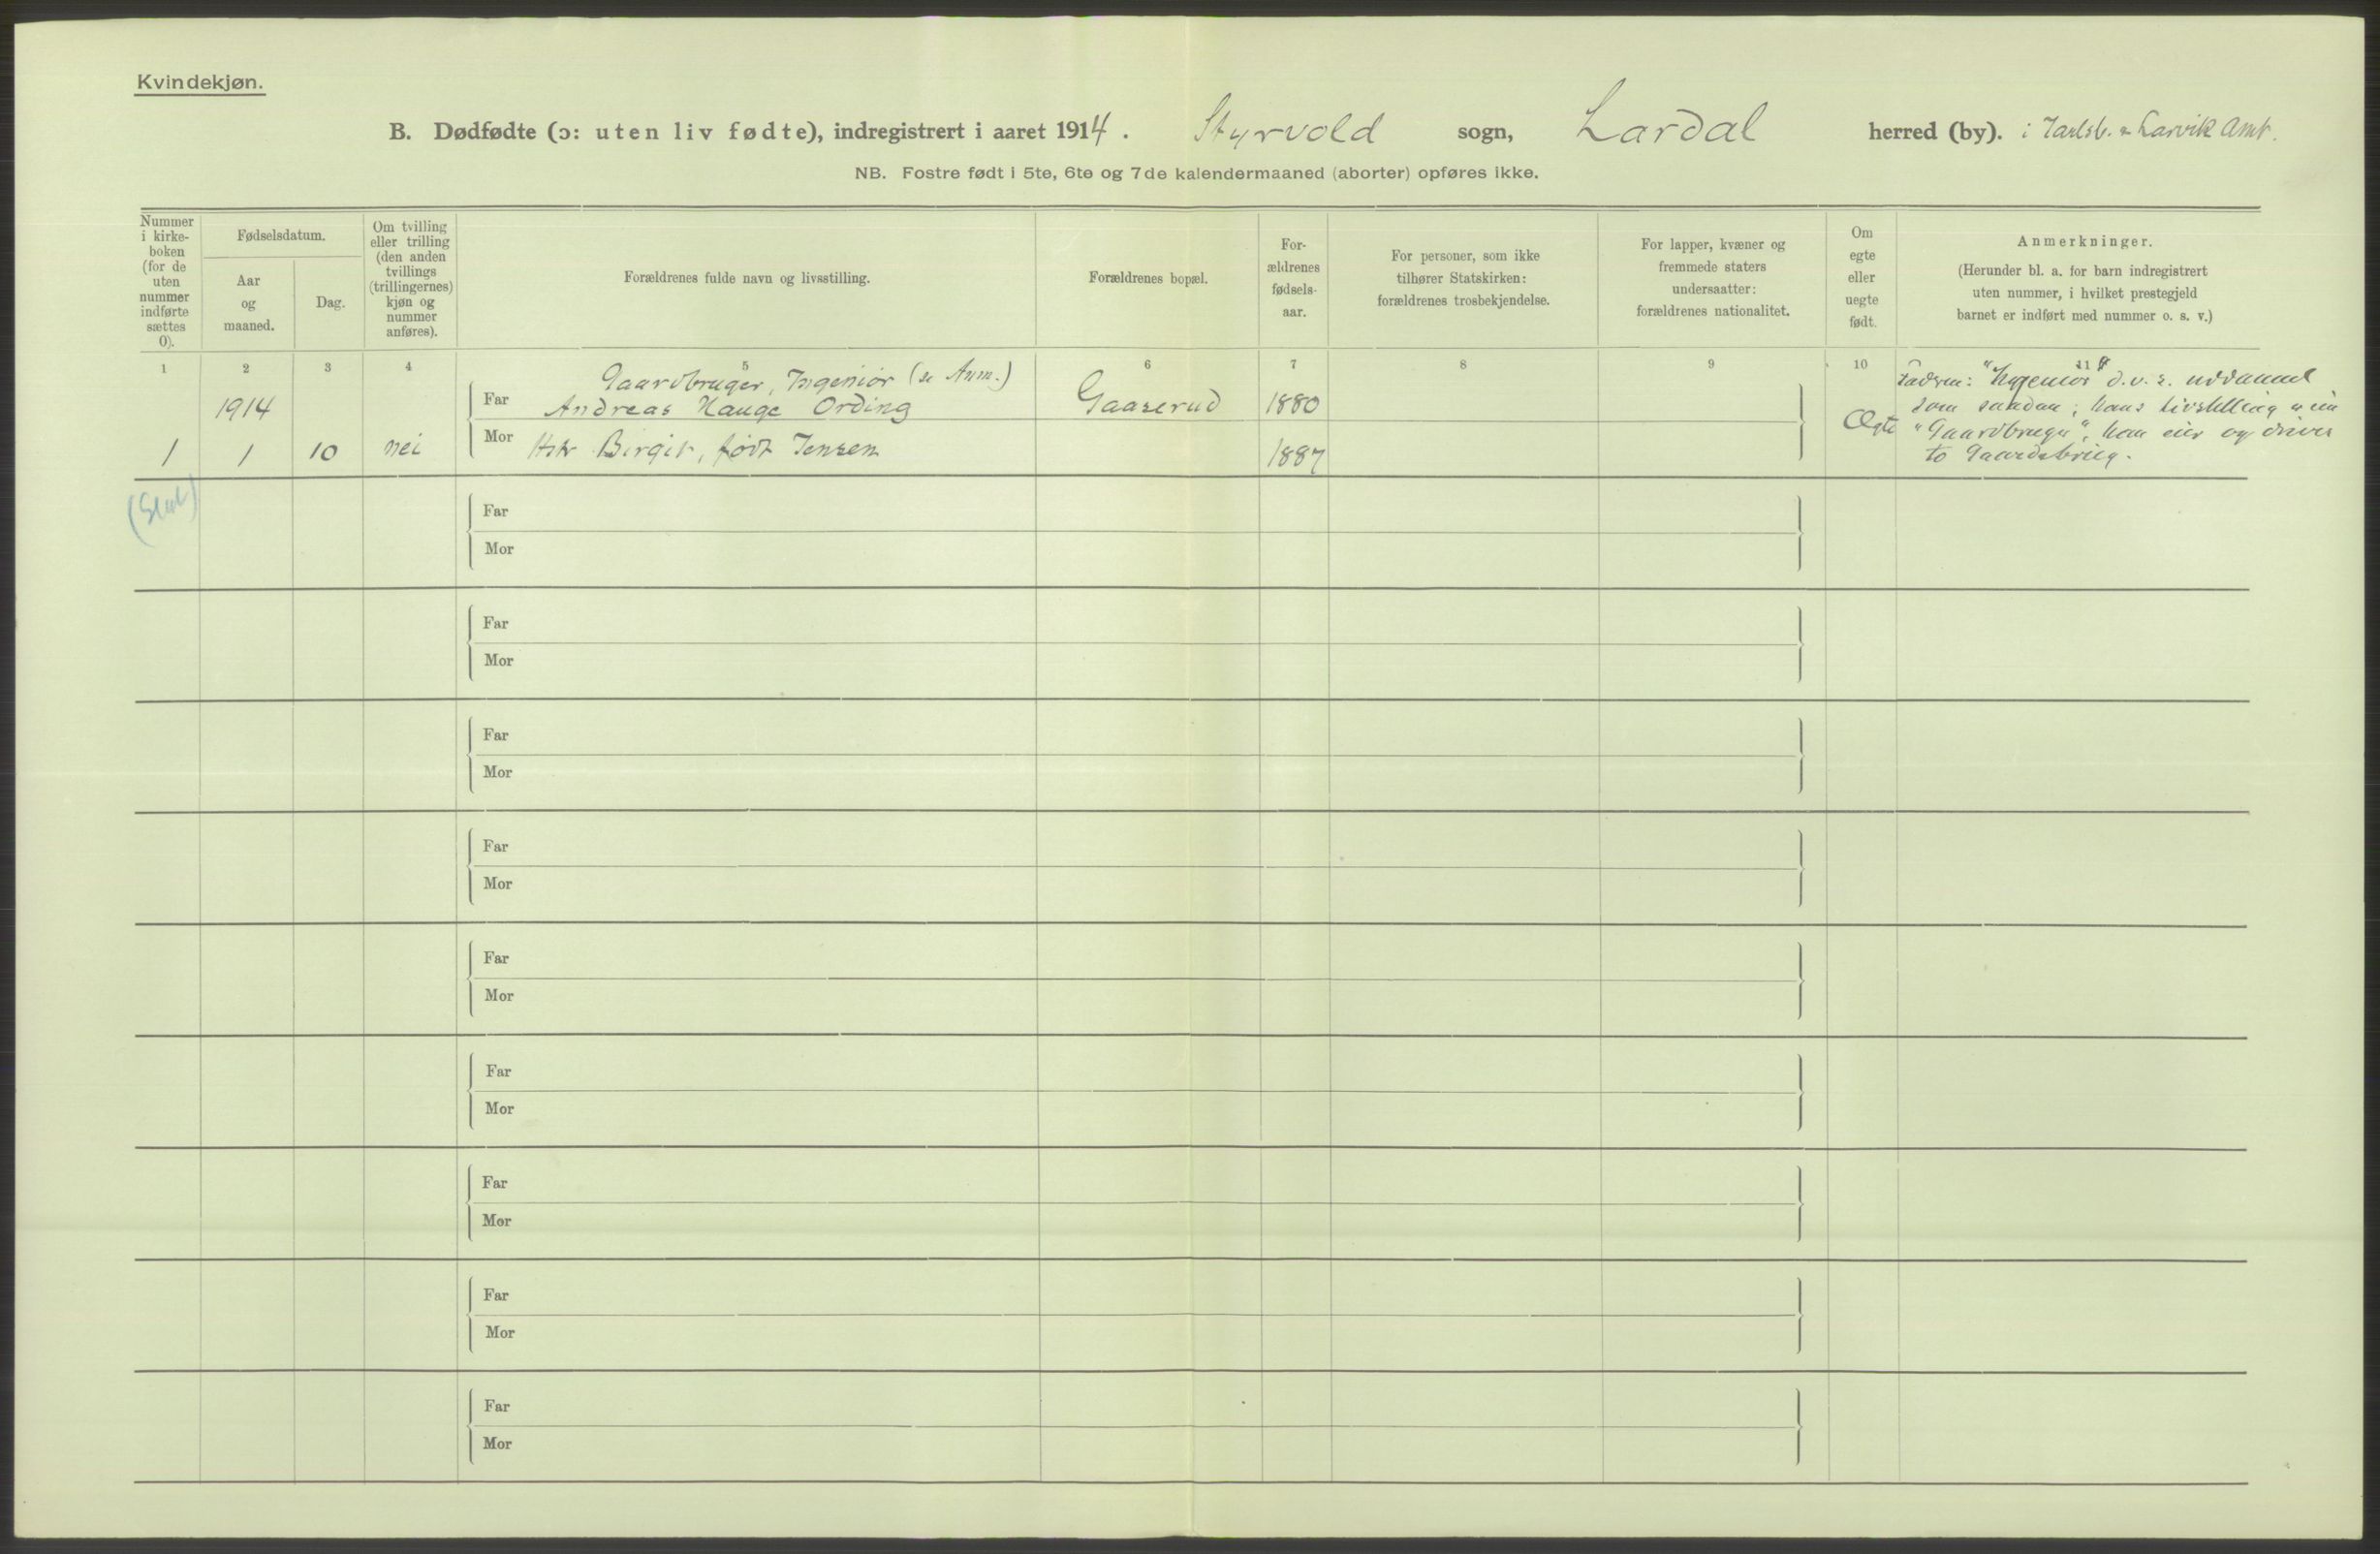 Kvindekjøn.
B. Dødfødte (ɔ: uten liv fødte), indregistrert i aaret 1914. Styrvold sogn, Lardal herred (by). i Jarlsb. & Larvik Amt.
NB. Fostre født i 5te, 6te og 7de kalendermaaned (aborter) opføres ikke.
Nummer
i kirke-
boken
(for de
uten
nummer
indførte
sættes
0).
Fødselsdatum.
Aar
og
maaned.
Dag.
Om tvilling
eller trilling
(den anden
tvillings
(trillingernes)
kjøn og
nummer
anføres).
Forældrenes fulde navn og livsstilling.
Forældrenes bopæl.
For-
ældrenes
fødsels-
aar.
For personer, som ikke
tilhører Statskirken:
forældrenes trosbekjendelse.
For lapper, kvæner og
fremmede staters
undersaatter:
forældrenes nationalitet.
Om
egte
eller
uegte
født.
Anmerkninger.
(Herunder bl. a. for barn indregistrert
uten nummer, i hvilket prestegjeld
barnet er indført med nummer o. s. v.)
1 2 3 4 5 6 7 8 9 10 11
Gaardbruger, Ingeniør (se Anm.)
1914 Far Andreas Hauge Ording Gaaserud 1880
1 1 10 nei Mor Hstr Birgit, født Jensen 1887
Ægte
Faderen: "Ingeniør" d.v.s. uddannet
som saadan; hans Livstilling er
"Gaardbruger", han eier og driver
to Gaardsbrug.
(Slut)
Far
Mor
Far
Mor
Far
Mor
Far
Mor
Far
Mor
Far
Mor
Far
Mor
Far
Mor
Far
Mor